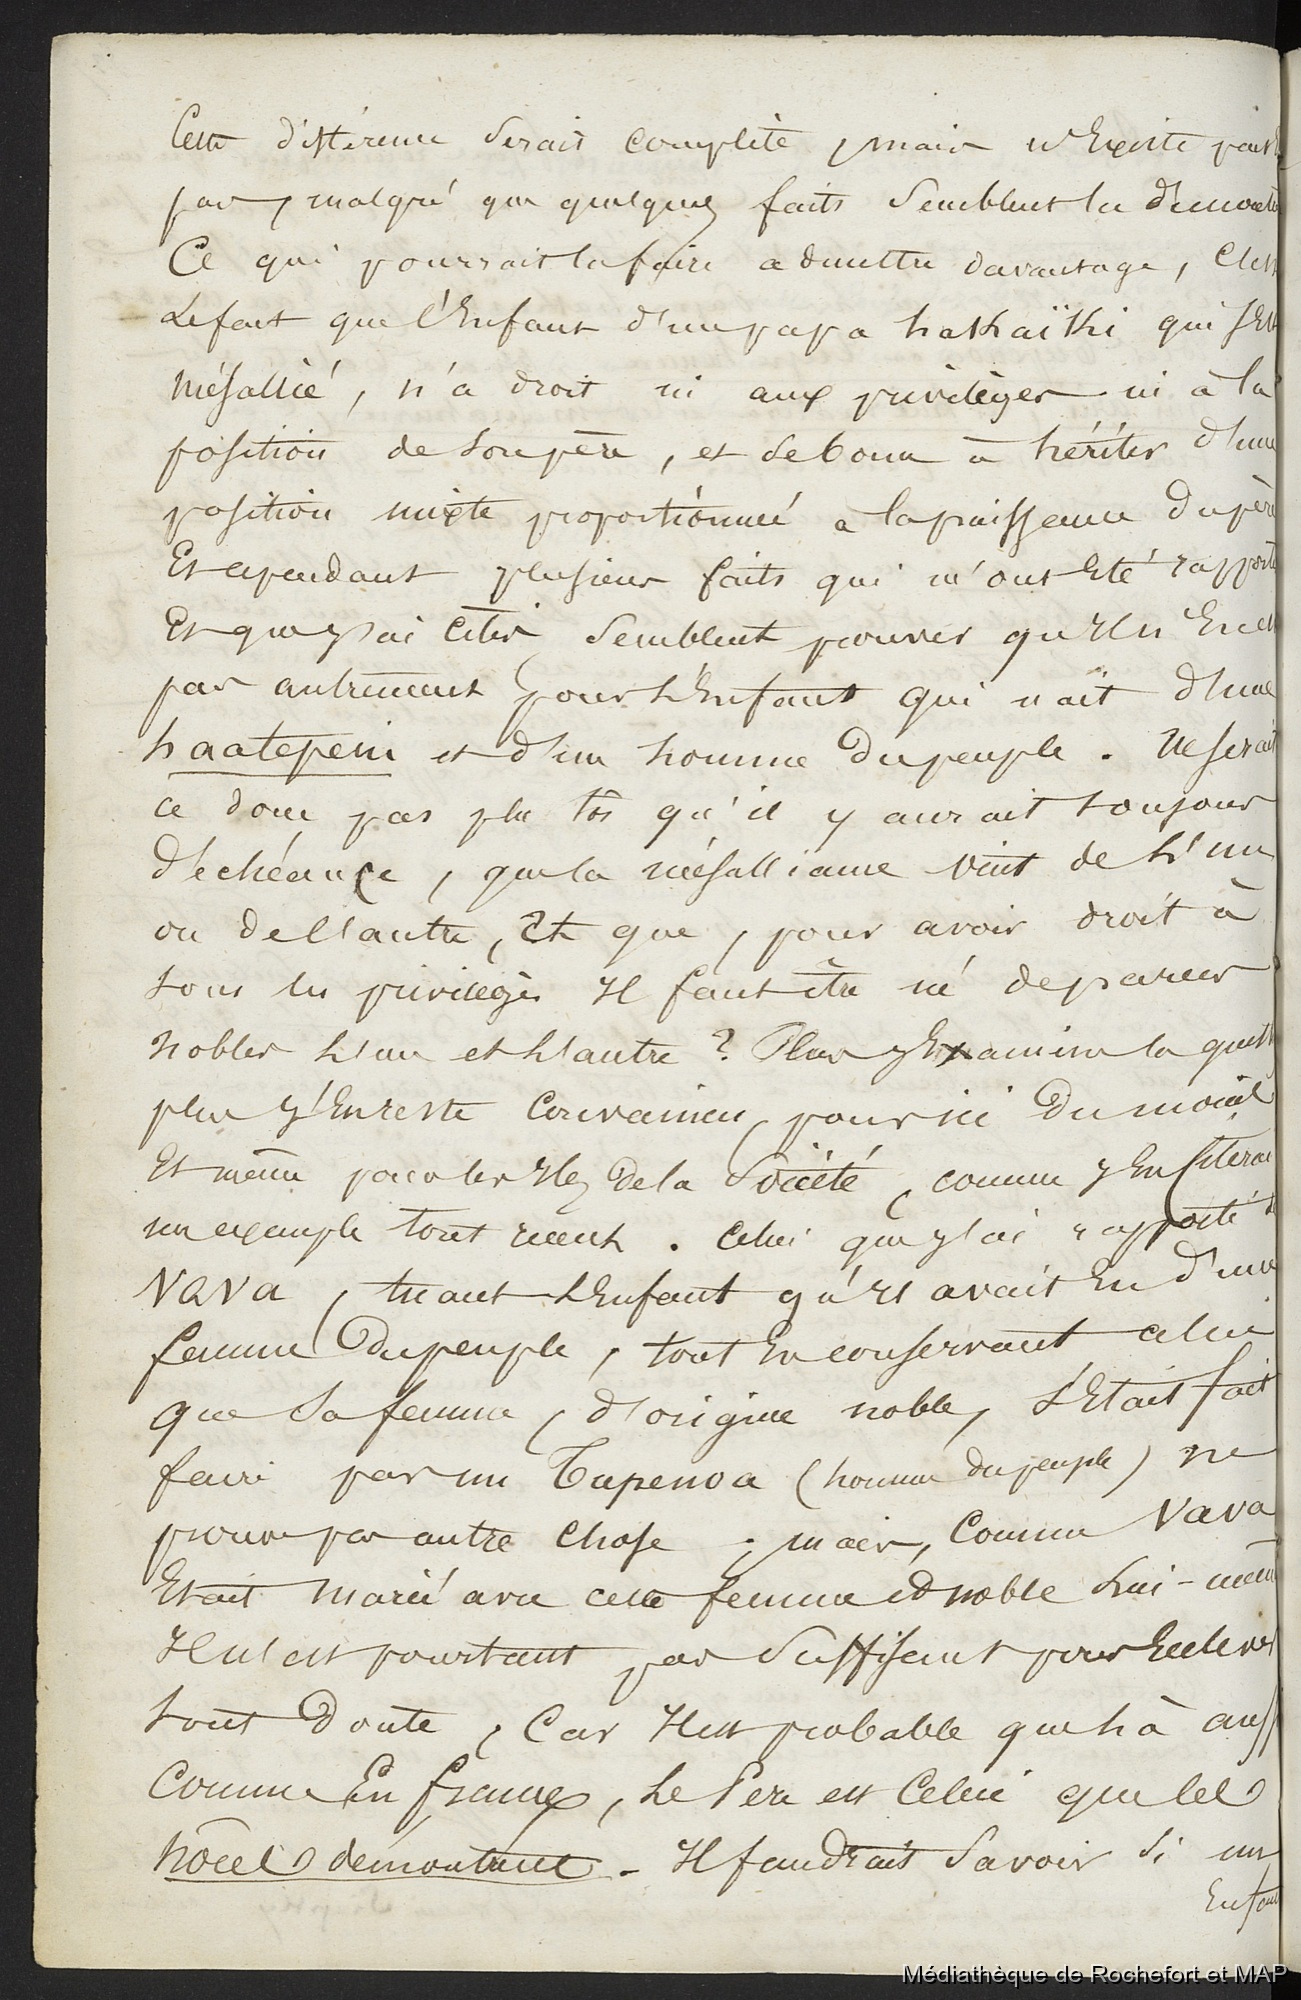 Cette différence serait complète, mais n'Existe peut
pas, malgré que quelques faits semblent la démontrer
Ce qui pourrait la faire admettre davantage, C'est
Le fait que l'Enfant d'un papa hakhaïki qui s'est
mésallié, n'a droit ni aux privilèges ni à la
position de son père, et se borne à hériter d'une
position mixte proportionnée à la puissance du père
Et cependant plusieurs faits qui m'ont Eté rapportés
Et que j'ai cités, semblent prouver qu'Il n'En est
pas autrement pour L'Enfant qui nait d'une
haatepeiu et d'un homme du peuple. Ne serait
ce donc pas plutôt qu'il y aurait toujours
d'échéance, que la mésalliance vint de L'un
ou de L'autre, Et que, pour avoir droit à
tous les privilèges Il faut être né de parens
nobles L'un et L'autre ? Plus j'Examine la quest
plus j'En reste convaincu, pour ici du moins
Et même pour les Iles de la Société, comme j'En citerai
un exemple tout récent. Celui que j'ai rapporté de
Vava, tuant L'Enfant qu'Il avait Eu d'une
femme du peuple, tout En conservant celui
que Sa femme, d'origine noble, s'Etait fait
faire par un Tapenoa (homme du peuple) ne
prouve pas autre Chose ; mais, Comme Vava
Etait marié avec cette femme et noble Lui-même
Il n'est pourtant pas Suffisant pour Enlever
tout Doute, Car Il est probable que Là aussi
Comme En france, Le Père est Celui que les
nôces démontrent - Il faudrait Savoir Si un
Enfant
Médiathèque de Rochefort et MAP